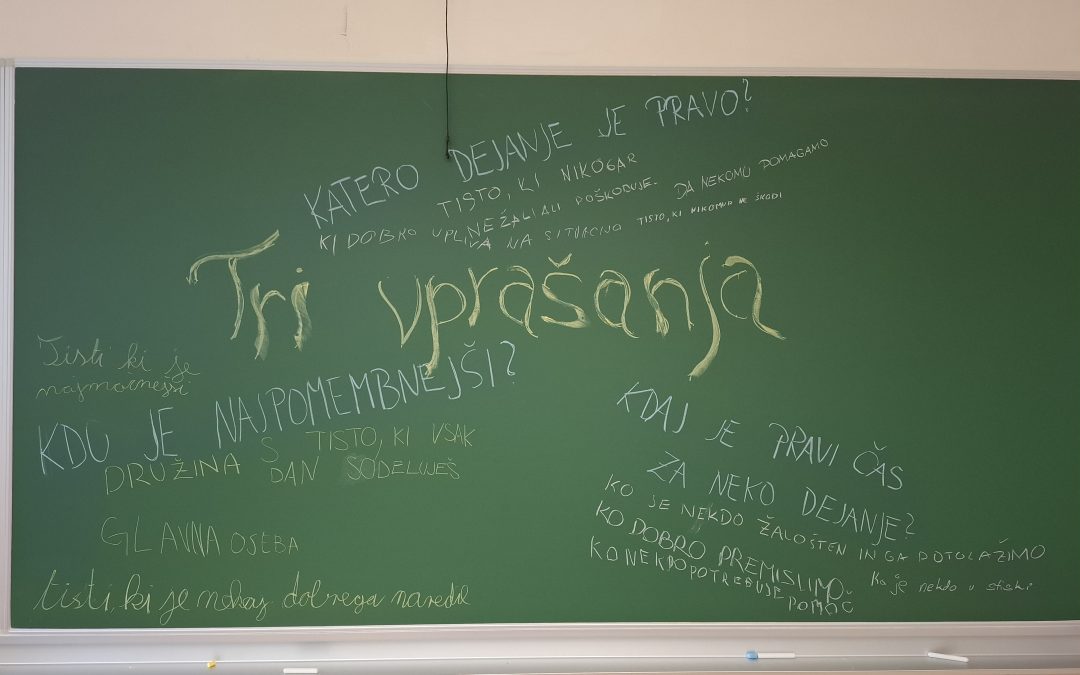 KATERO DEJANJE JE PRAVO?
TISTO, KI NIKOGAR
NE ŽALI ALI POŠKODUJE.
DA NEKOMU POMAGAMO
KI DOBRO VPLIVA NA SITUACIJO
TISTO, KI NIKOMUR NE ŠKODI
Tri vprašanja
Tisti ki je
najmočnejši
KDO JE NAJPOMEMBNEJŠI?
DRUŽINA
S TISTO, KI VSAK
DAN SODELUJEŠ
GLAVNA OSEBA
tisti, ki je nekaj dobrega naredil
KDAJ JE PRAVI ČAS
ZA NEKO DEJANJE?
KO JE NEKDO ŽALOSTEN IN GA POTOLAŽIMO
KO DOBRO PREMISLIMO.
Ko je nekdo v stiski
KO NEKDO POTREBUJE
POMOČ